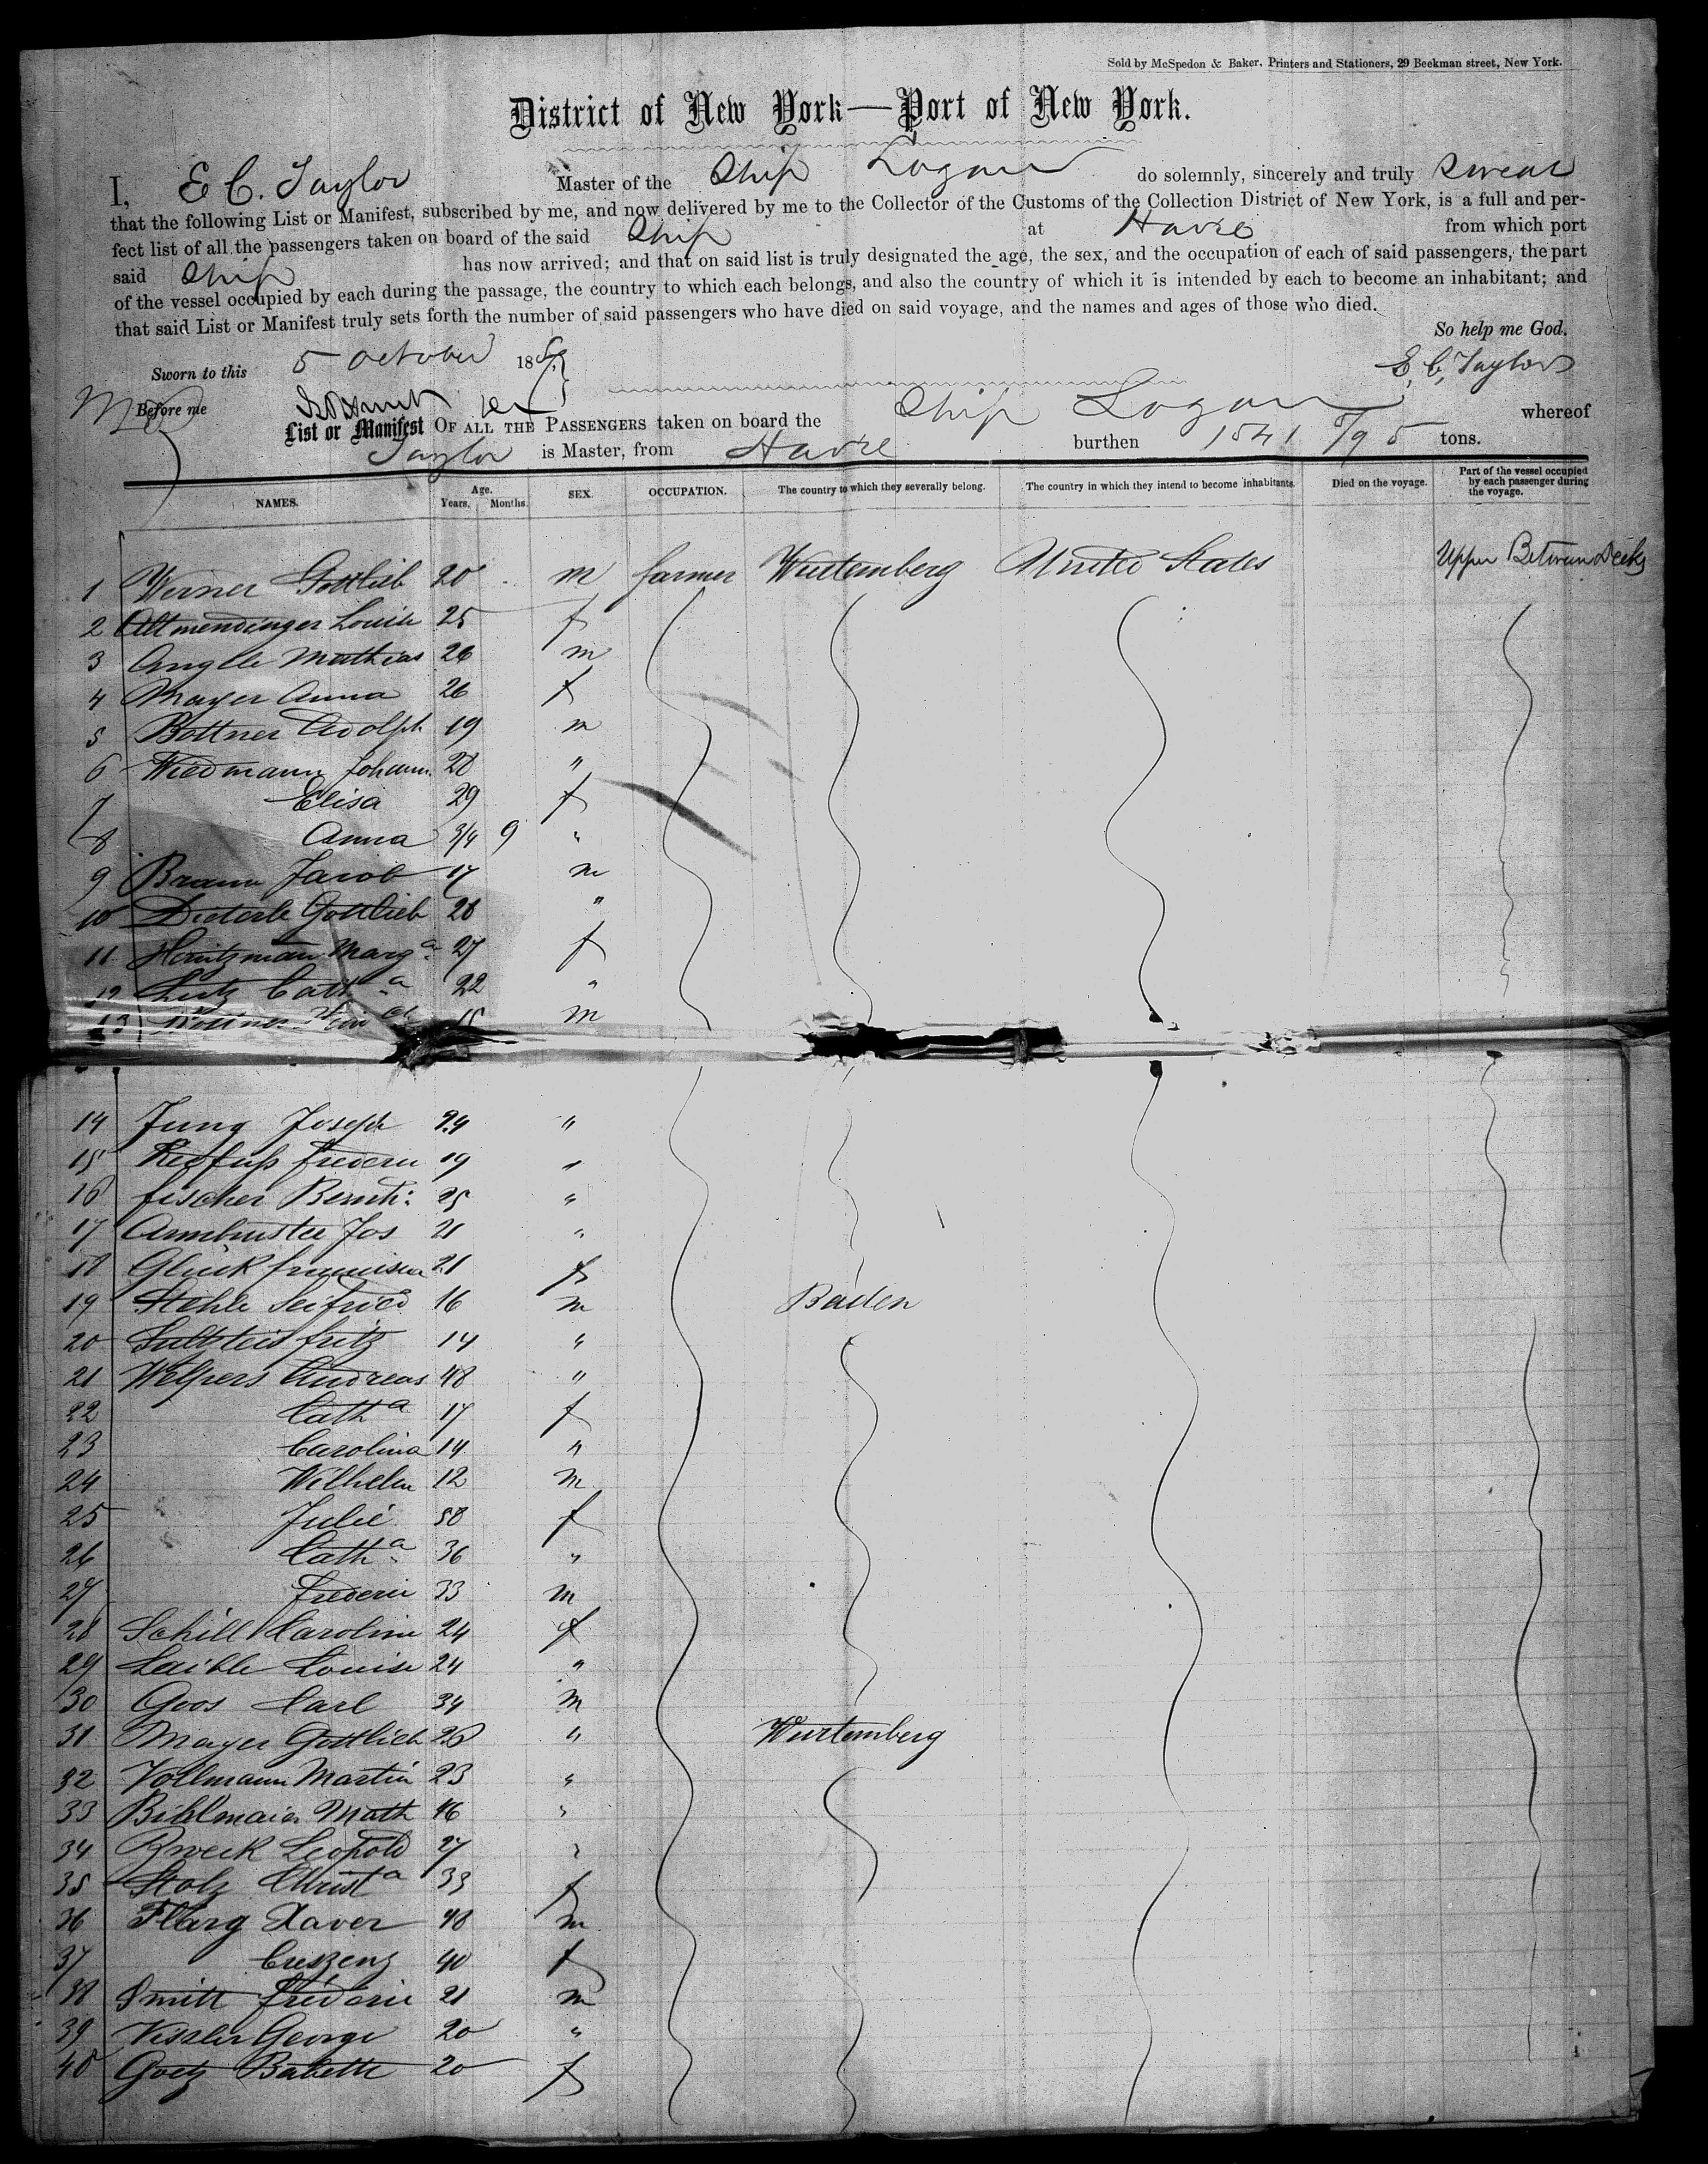 Sold by McSpedon & Baker, Printers and Stationers, 29 Beekman street, New York.
District of New York—Port of New York.
I, E C. Taylor Master of the Ship Logan do solemnly, sincerely and truly swear
that the following List or Manifest, subscribed by me, and now delivered by me to the Collector of the Customs of the Collection District of New York, is a full and per-
fect list of all the passengers taken on board of the said Ship at Havre from which port
said Ship has now arrived; and that on said list is truly designated the age, the sex, and the occupation of each of said passengers, the part
of the vessel occupied by each during the passage, the country to which each belongs, and also the country of which it is intended by each to become an inhabitant; and
that said List or Manifest truly sets forth the number of said passengers who have died on said voyage, and the names and ages of those who died.
So help me God.
Sworn to this 5 October 18
E. C. Taylor
Before me
List or Manifest OF ALL THE PASSENGERS taken on board the Ship Logan whereof
Taylor is Master, from Havre burthen 1541 5/95 tons.
NAMES. Age. Years. Months. SEX. OCCUPATION. The country to which they severally belong. The country in which they intend to become inhabitants. Died on the voyage. Part of the vessel occupied by each passenger during the voyage.
1 Werner Gottlieb 20 m farmer Wurtemberg United States Upper Between Decks
2 Altmendinger Louise 25 f
3 Angele Mathias 26 m
4 Mayer Anna 26 f
5 Bottner Adolph 19 m
6 Wiedmann Johann 28 "
7 Elisa 29 f
8 Anna 3/4 9 "
9 Braun Jacob 17 m
10 Dieterle Gottlieb 28 "
11 Heintzmann Marga 27 f
12 Lutz Catha 22 "
13 m
14 Jung Joseph 24 "
15 Rehfuss Frederic 19 "
16 Fischer Bernh: 25 "
17 Armbruster Jos 21 "
18 Gluck Francisca 21 f
19 Stehle Seifried 16 m Baden
20 Fritz 14 "
21 Welpers Andreas 48 "
22 Catha 17 f
23 Carolina 14 "
24 Wilhelm 12 m
25 Julie 58 f
26 Catha 36 "
27 Frederic 33 m
28 Schill Karoline 24 f
29 Laible Louise 24 "
30 Goos Carl 34 m
31 Mayer Gottlieb 26 " Wurtemberg
32 Vollmann Martin 23 "
33 Bihlmaier Math 46 "
34 Leopold 27 "
35 Stolz Christa 33 f
36 Flarg Xaver 48 m
37 Creszenz 40 f
38 Smitt Frederic 21 m
39 Kessler George 20 "
40 Goetz Babette 20 f